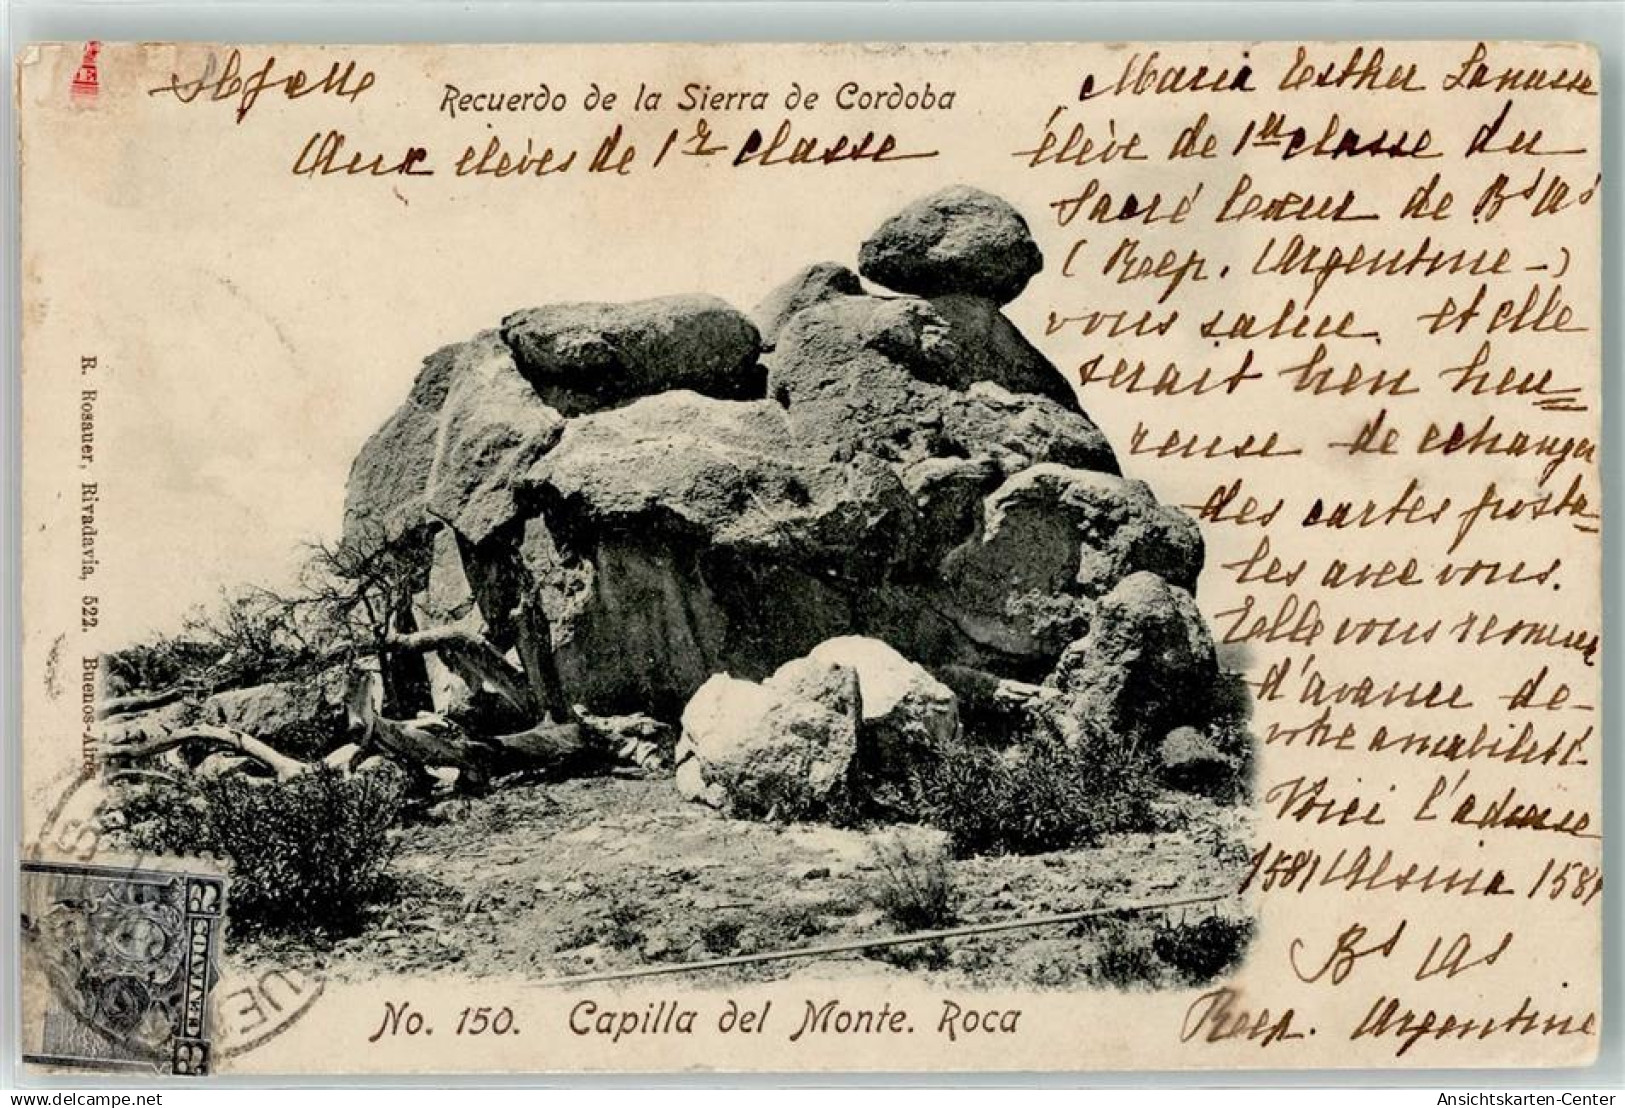 Recuerdo de la Sierra de Cordoba
Aux élèves de 1re classe
Maria Esther Lanusse
élève de 1re classe du
Sacré Coeur de Bs As
(Rep. Argentine-)
vous salue et elle
serait bien heu=
reuse de echanger
des cartes posta=
les avec vous.
Elle vous remercie
d'avance de-
votre amabilité.
Voici l'adresse
1581 Alsina 1581
Bs As
Rep. Argentine
R. Rosauer, Rivadavia, 522. Buenos-Aires
No. 150. Capilla del Monte. Roca
Ansichtskarten-Center